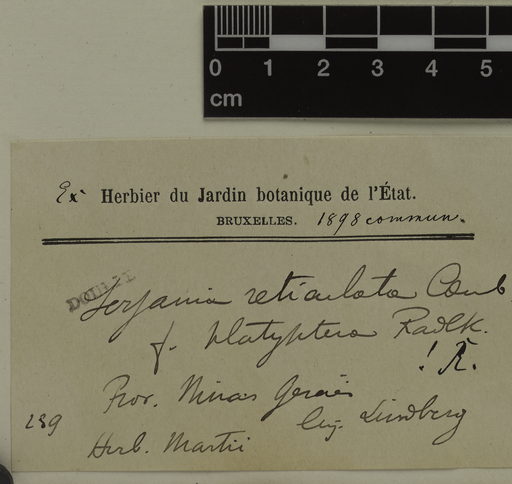 0 1 2 3 4 5
cm
Ex Herbier du Jardin botanique de l'État.
BRUXELLES. 1898 commun.
DOUBLE
Serjania reticulata Camb
f. platyptera Radlk.
! R.
Prov. Minas Geraës
239 Eug. Lindberg
Herb. Martii